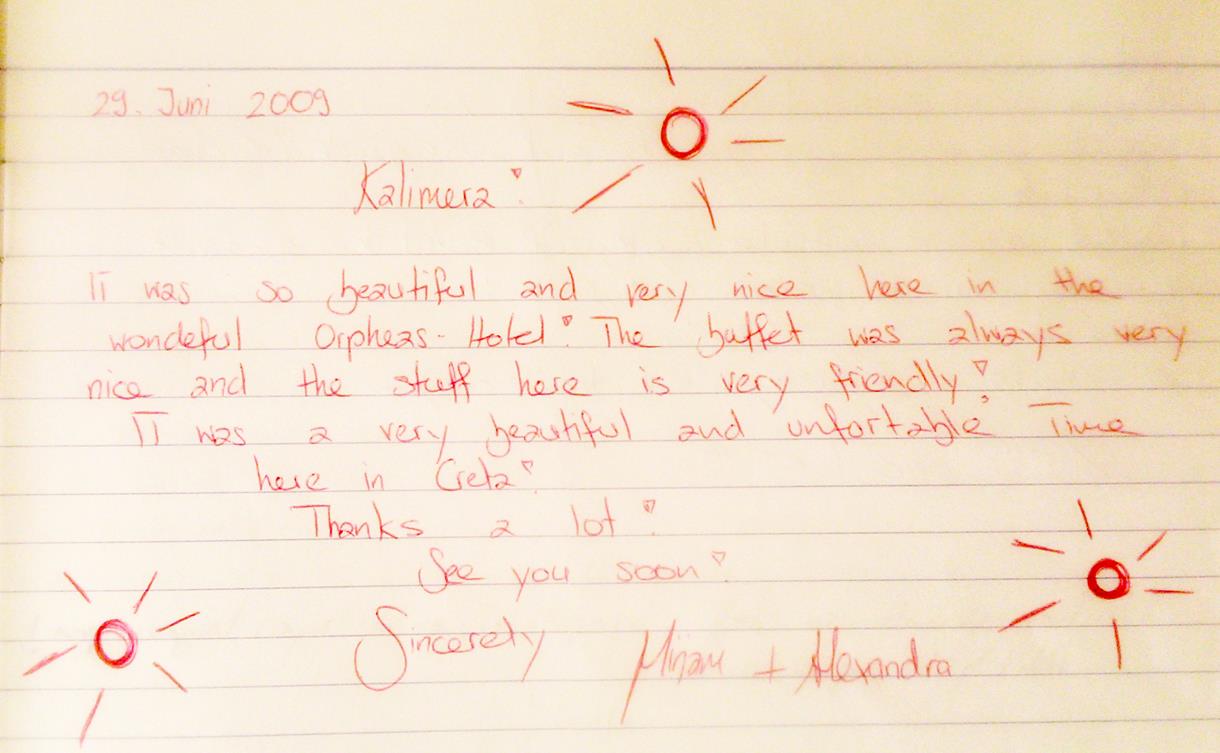 29. Juni 2009
Kalimera!
It was so beautiful and very nice here in the
wondeful Orpheas-Hotel! The buffet was always very
nice and the stuff here is very friendly!
It was a very beautiful and unfortable Time
here in Creta!
Thanks a lot!
See you soon!
Sincerely Mirjam + Alexandra